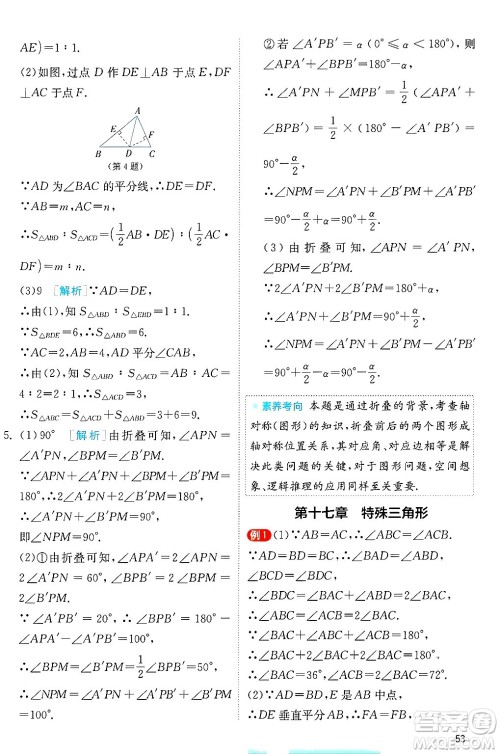 AE)=1∶1.
(2)如图,过点 D 作 DE⊥AB 于点 E,DF
⊥AC 于点 F.
A
E
F
B
D
C
(第4题)
∵AD 为∠BAC 的平分线,∴DE=DF.
∵AB=m,AC=n,
∴S△ABD∶S△ACD=(1/2 AB·DE)∶(1/2 AC·
DF)=m∶n.
(3)9 [解析]∵AD=DE,
∴由(1),知 S△ABD∶S△EBD=1∶1.
∵S△BDE=6,∴S△ABD=6.
∵AC=2,AB=4,AD 平分∠CAB,
∴由(2),知 S△ABD∶S△ACD=AB∶AC=
4∶2=2∶1.∴S△ACD=3.
∴S△ABC=S△ABD+S△ACD=3+6=9.
5. (1)90° [解析]由折叠可知,∠APN=
∠A′PN,∠BPM=∠B′PM.
∵∠APN+∠A′PN+∠BPM+∠B′PM=
180°,∴∠A′PN+∠B′PM=90°,
即∠NPM=90°.
(2)①由折叠可知,∠APA′=2∠APN=
2∠A′PN=60°,∠BPM=∠B′PM.
∵∠A′PB′=20°,∴∠BPB′=180°-
∠APA′-∠A′PB′=100°.
∴∠BPM=∠B′PM=1/2∠BPB′=50°.
∴∠NPM=180°-∠APN-∠BPM=
100°.
②若∠A′PB′=α(0°≤α<180°),则
∠APA′+∠BPB′=180°-α.
∴∠A′PN+∠MPB′=1/2(∠APA′+
∠BPB′)=1/2×(180°-∠A′PB′)=
90°-α/2.
∴∠NPM=∠A′PN+∠MPB′+
∠A′PB′=90°-α/2+α=90°+α/2.
(3)由折叠可知,∠APN=∠A′PN,
∠BPM=∠B′PM.
∴∠A′PN+∠B′PM=1/2×(180°+
∠A′PB′)=90°+α/2.
∴∠NPM=∠A′PN+∠B′PM-
∠A′PB′=90°+α/2-α=90°-α/2.
素养考向 本题是通过折叠的背景,考查轴
对称(图形)的知识,折叠前后的两个图形成
轴对称位置关系,其对应角、对应边相等是解
决此类问题的关键,对于图形问题,空间想
象、逻辑推理的应用同样至关重要.
第十七章 特殊三角形
例1 (1)∵AB=AC,∴∠ABC=∠C.
∵BD=AD,∴∠ABD=∠BAC.
∵BD=BC,∴∠C=∠BDC.
∵∠BDC=∠ABD+∠BAC=2∠BAC,
∴∠ABC=∠C=2∠BAC.
∵∠BAC+∠ABC+∠C=180°,
∴∠BAC+2∠BAC+2∠BAC=180°.
∴∠BAC=36°.∴∠ABC=72°.
(2)∵DE 垂直平分 AB,∴DA=DB.
53